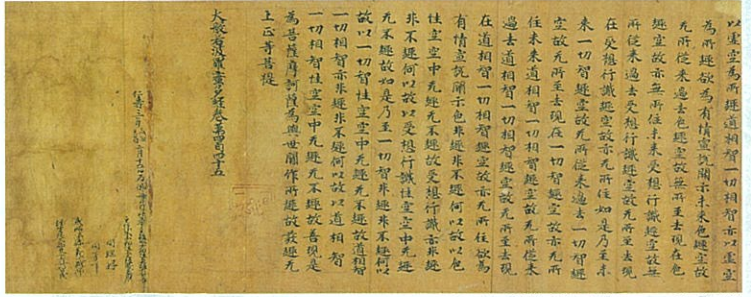 以虚空為所趣道相智一切相智亦以虚空
為所趣欲為有情宣說開示未来色趣空故
无所従来過去色趣空故無所至去現在色
趣空故亦無所住未来受想行識趣空故無
所従来過去受想行識趣空故无所至去現
在受想行識趣空故亦无所住如是乃至未
来一切智趣空故无所従来過去一切智趣
空故无所至去現在一切智趣空故亦无所
住未来道相智一切相智趣空故无所従来
過去道相智一切相智趣空故无所至去現
在道相智一切相智趣空故亦无所住欲為
有情宣說開示色非趣非不趣何以故以色
性空空中无趣无不趣故受想行識亦非趣
非不趣何以故以受想行識性空空中无趣
无不趣故如是乃至一切智非趣非不趣何以
故以一切智性空空中无趣无不趣故道相智
一切相智亦非趣非不趣何以故以道相智
一切相智性空空中无趣无不趣故善現是
為菩薩摩訶薩為與世間作所趣故發趣无
上正等菩提
大般若波羅蜜多経巻第四百四十五